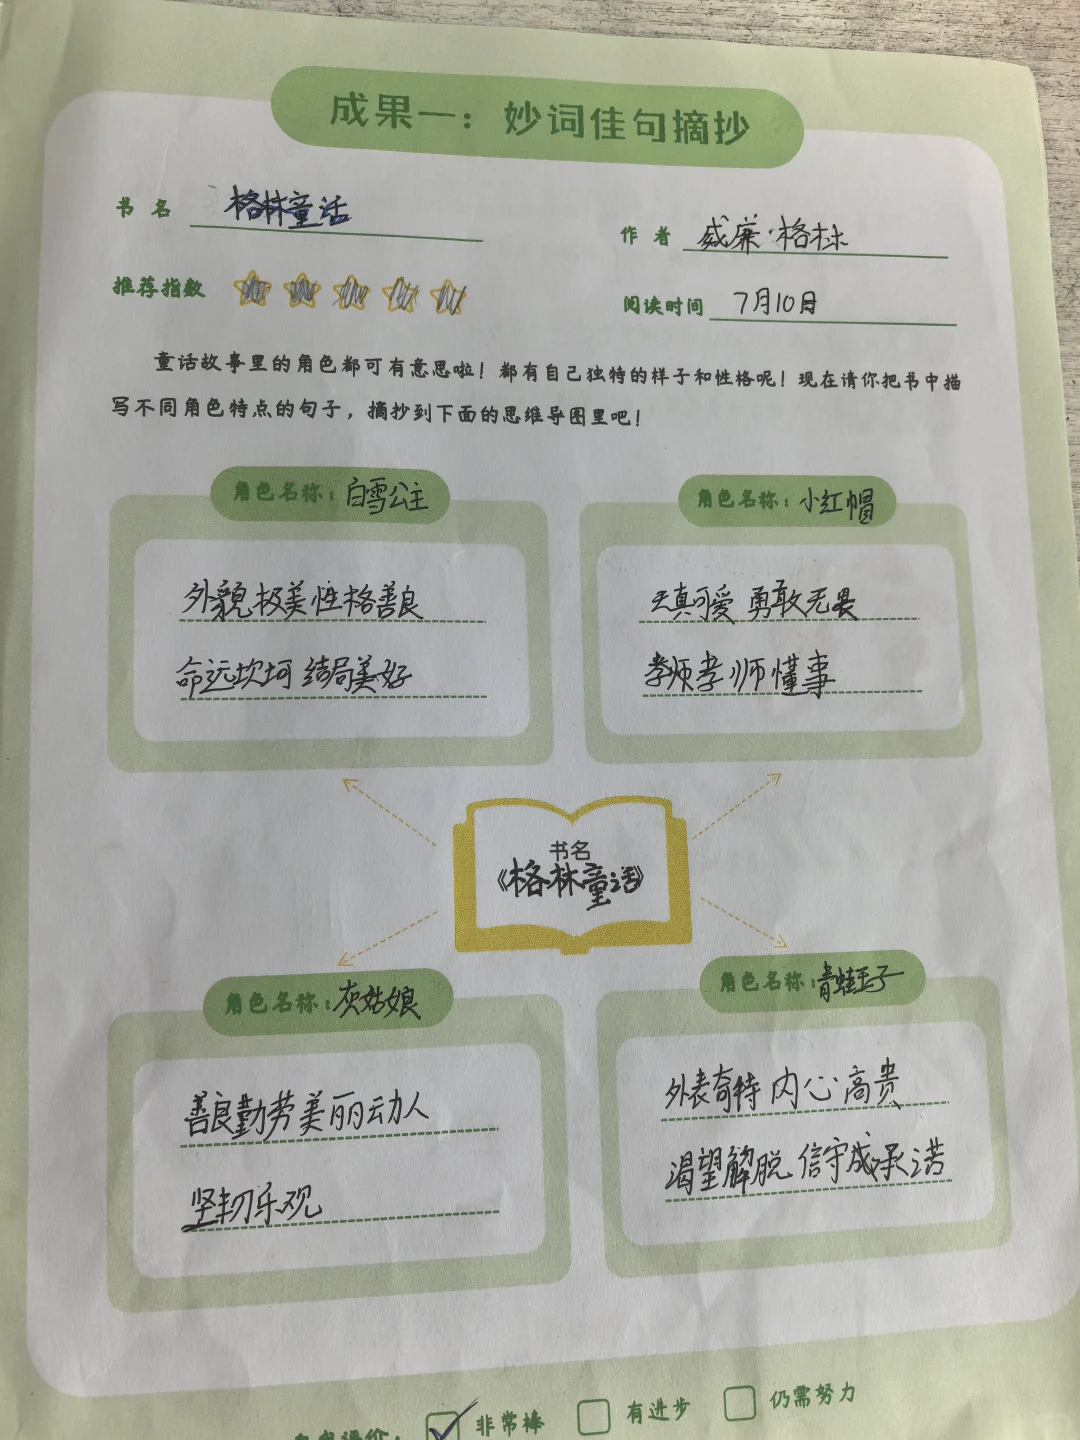 成果一：妙词佳句摘抄
书名 格林童话
作者 威廉·格林
推荐指数
阅读时间 7月10日
童话故事里的角色都可有意思啦！都有自己独特的样子和性格呢！现在请你把书中描
写不同角色特点的句子，摘抄到下面的思维导图里吧！
角色名称：白雪公主
外貌极美 性格善良
命远坎坷 结局美好
角色名称：小红帽
天真可爱 勇敢无畏
懂事
书名
《格林童话》
角色名称：灰姑娘
善良勤劳 美丽动人
坚韧乐观
角色名称：青蛙王子
外表奇特 内心高贵
渴望解脱 信守成承诺
自我评价：
非常棒
有进步
仍需努力